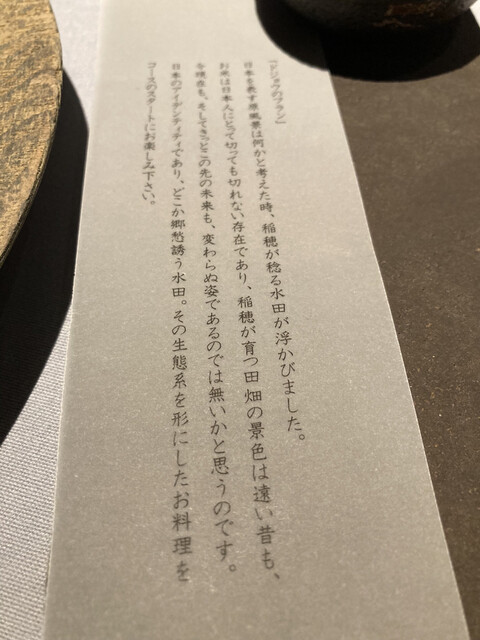 『ドジョウのフラン』
日本を表す原風景は何かと考えた時、稲穂が稔る水田が浮かびました。
お米は日本人にとって切っても切れない存在であり、稲穂が育つ田畑の景色は遠い昔も、
今現在も、そしてきっとこの先の未来も、変わらぬ姿であるのでは無いかと思うのです。
日本のアイデンティティであり、どこか郷愁誘う水田。その生態系を形にしたお料理を
コースのスタートにお楽しみ下さい。